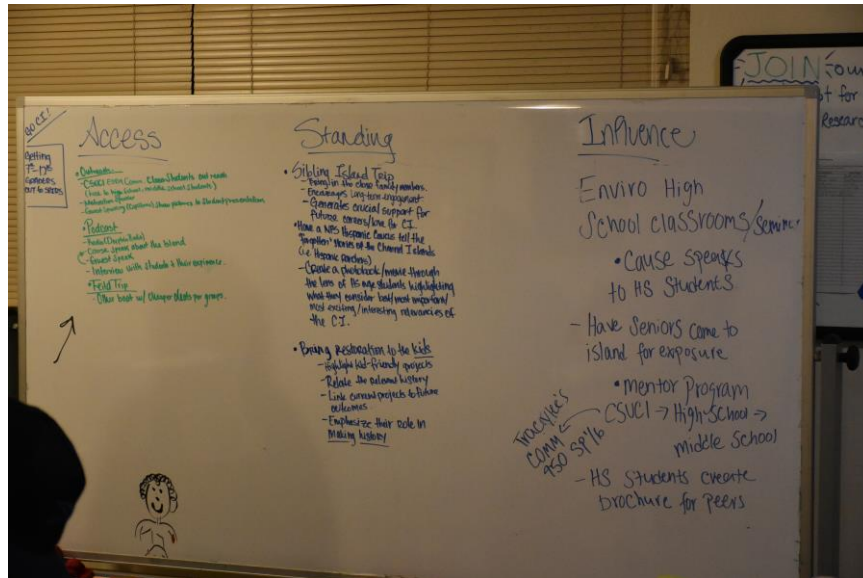 GO CI!
Getting
7th-12th
Graders
out to SEEDS
Access
• Outreach
(free to high school, middle school students)
- Motivation Speaker
• Podcast
- Radio (Dayton Duke)
- Cause speak about the Island
- Ernest speak
- Interview with Students & their experience.
• Field Trip
- Other boat w/ Cheaper rates for groups.
Standing
• Sibling Island Trip
- Bring in the close family members.
- Encourages long-term engagement
- Generates crucial support for
future careers/love for CI.
• Have a NPS Hispanic Caucus tell the
"forgotten" stories of the Channel Islands
(i.e. Hispanic Ranchers)
- Create a photobook/movie through
the lens of HS age students highlighting
what they consider best/most important/
most exciting/interesting relevancies of
the C.I.
• Bring Restoration to the kids
- Highlight kid-friendly projects
- Relate the relevant history
- Link current projects to future
outcomes
- Emphasize their role in
Making history
Influence
Enviro High
School classrooms/
• Cause speaks
to HS Students
- Have Seniors come to
island for exposure
• mentor Program
CSUCI → High-School →
middle School
Tracylee's
COMM
450 SP '16
- HS Students create
brochure for peers
JOIN our
for
Research